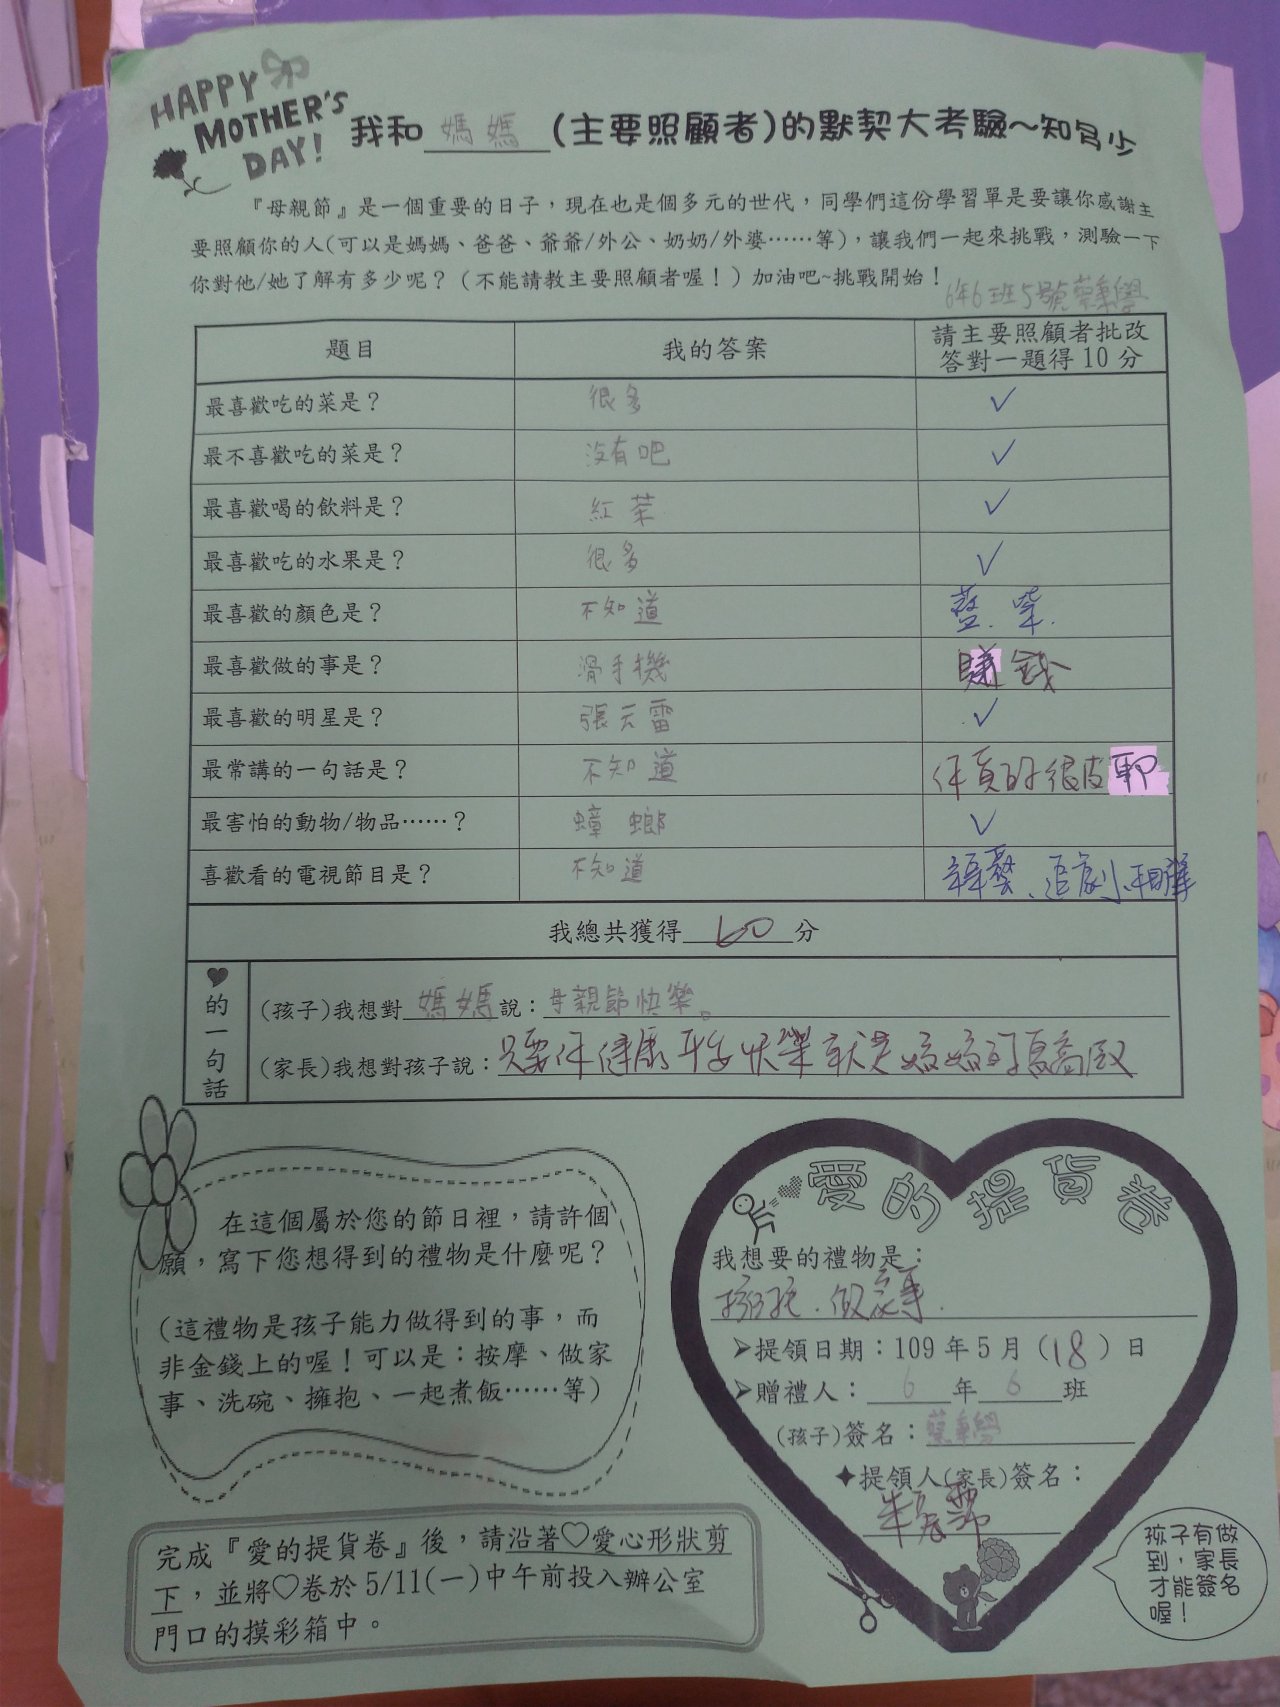 HAPPY
MOTHER'S
DAY!
我和 媽媽 (主要照顧者)的默契大考驗~知多少
『母親節』是一個重要的日子，現在也是個多元的世代，同學們這份學習單是要讓你感謝主
要照顧你的人(可以是媽媽、爸爸、爺爺/外公、奶奶/外婆……等)，讓我們一起來挑戰，測驗一下
你對他/她了解有多少呢？（不能請教主要照顧者喔！）加油吧~挑戰開始！
6年6班5號
題目 我的答案 請主要照顧者批改
答對一題得10分
最喜歡吃的菜是？ 很多 ✓
最不喜歡吃的菜是？ 沒有吧 ✓
最喜歡喝的飲料是？ 紅茶 ✓
最喜歡吃的水果是？ 很多 ✓
最喜歡的顏色是？ 不知道 藍、紫.
最喜歡做的事是？ 滑手機 賺錢
最喜歡的明星是？ 張云雷 ✓
最常講的一句話是？ 不知道 你真的很皮耶
最害怕的動物/物品……？ 蟑螂 ✓
喜歡看的電視節目是？ 不知道 綜藝、追劇、相聲
我總共獲得 60 分
♥的一句話
(孩子)我想對 媽媽 說：母親節快樂。
(家長)我想對孩子說：只要你健康平安快樂就是媽媽的驕傲
在這個屬於您的節日裡，請許個
願，寫下您想得到的禮物是什麼呢？
(這禮物是孩子能力做得到的事，而
非金錢上的喔！可以是：按摩、做家
事、洗碗、擁抱、一起煮飯……等)
完成『愛的提貨卷』後，請沿著♡愛心形狀剪
下，並將♡卷於5/11(一)中午前投入辦公室
門口的摸彩箱中。
愛的提貨卷
我想要的禮物是：
擁抱、做家事.
➤提領日期：109年5月（18）日
➤贈禮人： 6 年 6 班
(孩子)簽名：
✦提領人(家長)簽名：
孩子有做
到，家長
才能簽名
喔！